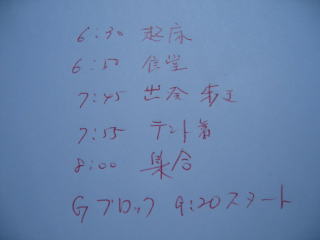 6:30 起床
6:50 食堂
7:45 出発
7:55 テント着
8:00 集合
Gブロック 9:20スタート